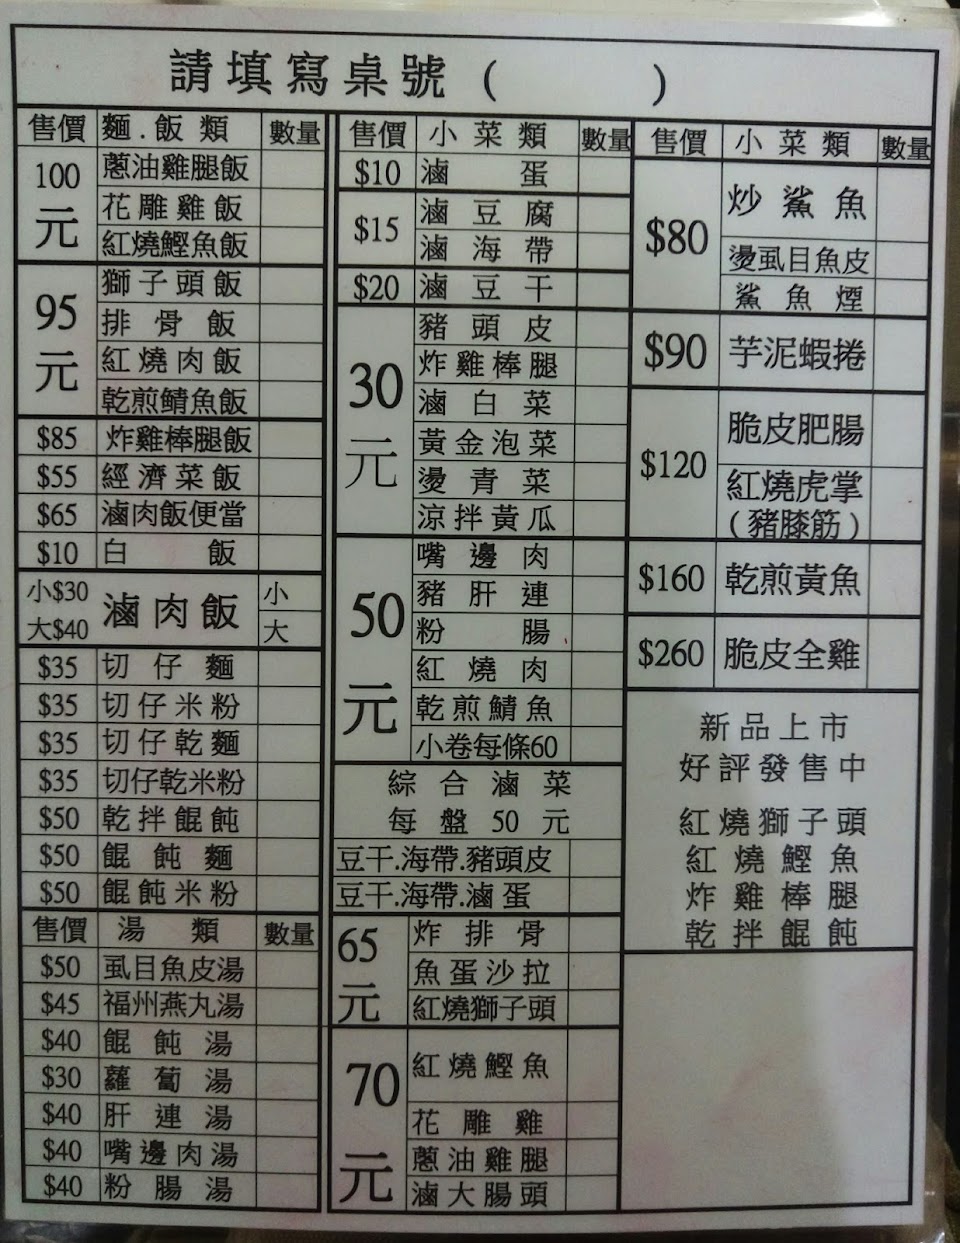 請填寫桌號 ( )
售價 麵.飯類 數量
100元 蔥油雞腿飯
花雕雞飯
紅燒鰹魚飯
95元 獅子頭飯
排骨飯
紅燒肉飯
乾煎鯖魚飯
$85 炸雞棒腿飯
$55 經濟菜飯
$65 滷肉飯便當
$10 白飯
小$30 大$40 滷肉飯 小 大
$35 切仔麵
$35 切仔米粉
$35 切仔乾麵
$35 切仔乾米粉
$50 乾拌餛飩
$50 餛飩麵
$50 餛飩米粉
售價 湯類 數量
$50 虱目魚皮湯
$45 福州燕丸湯
$40 餛飩湯
$30 蘿蔔湯
$40 肝連湯
$40 嘴邊肉湯
$40 粉腸湯
售價 小菜類 數量
$10 滷蛋
$15 滷豆腐
滷海帶
$20 滷豆干
30元 豬頭皮
炸雞棒腿
滷白菜
黃金泡菜
燙青菜
涼拌黃瓜
50元 嘴邊肉
豬肝連
粉腸
紅燒肉
乾煎鯖魚
小卷每條60
綜合滷菜
每盤50元
豆干.海帶.豬頭皮
豆干.海帶.滷蛋
65元 炸排骨
魚蛋沙拉
紅燒獅子頭
70元 紅燒鰹魚
花雕雞
蔥油雞腿
滷大腸頭
售價 小菜類 數量
$80 炒鯊魚
燙虱目魚皮
鯊魚煙
$90 芋泥蝦捲
$120 脆皮肥腸
紅燒虎掌
(豬膝筋)
$160 乾煎黃魚
$260 脆皮全雞
新品上市
好評發售中
紅燒獅子頭
紅燒鰹魚
炸雞棒腿
乾拌餛飩